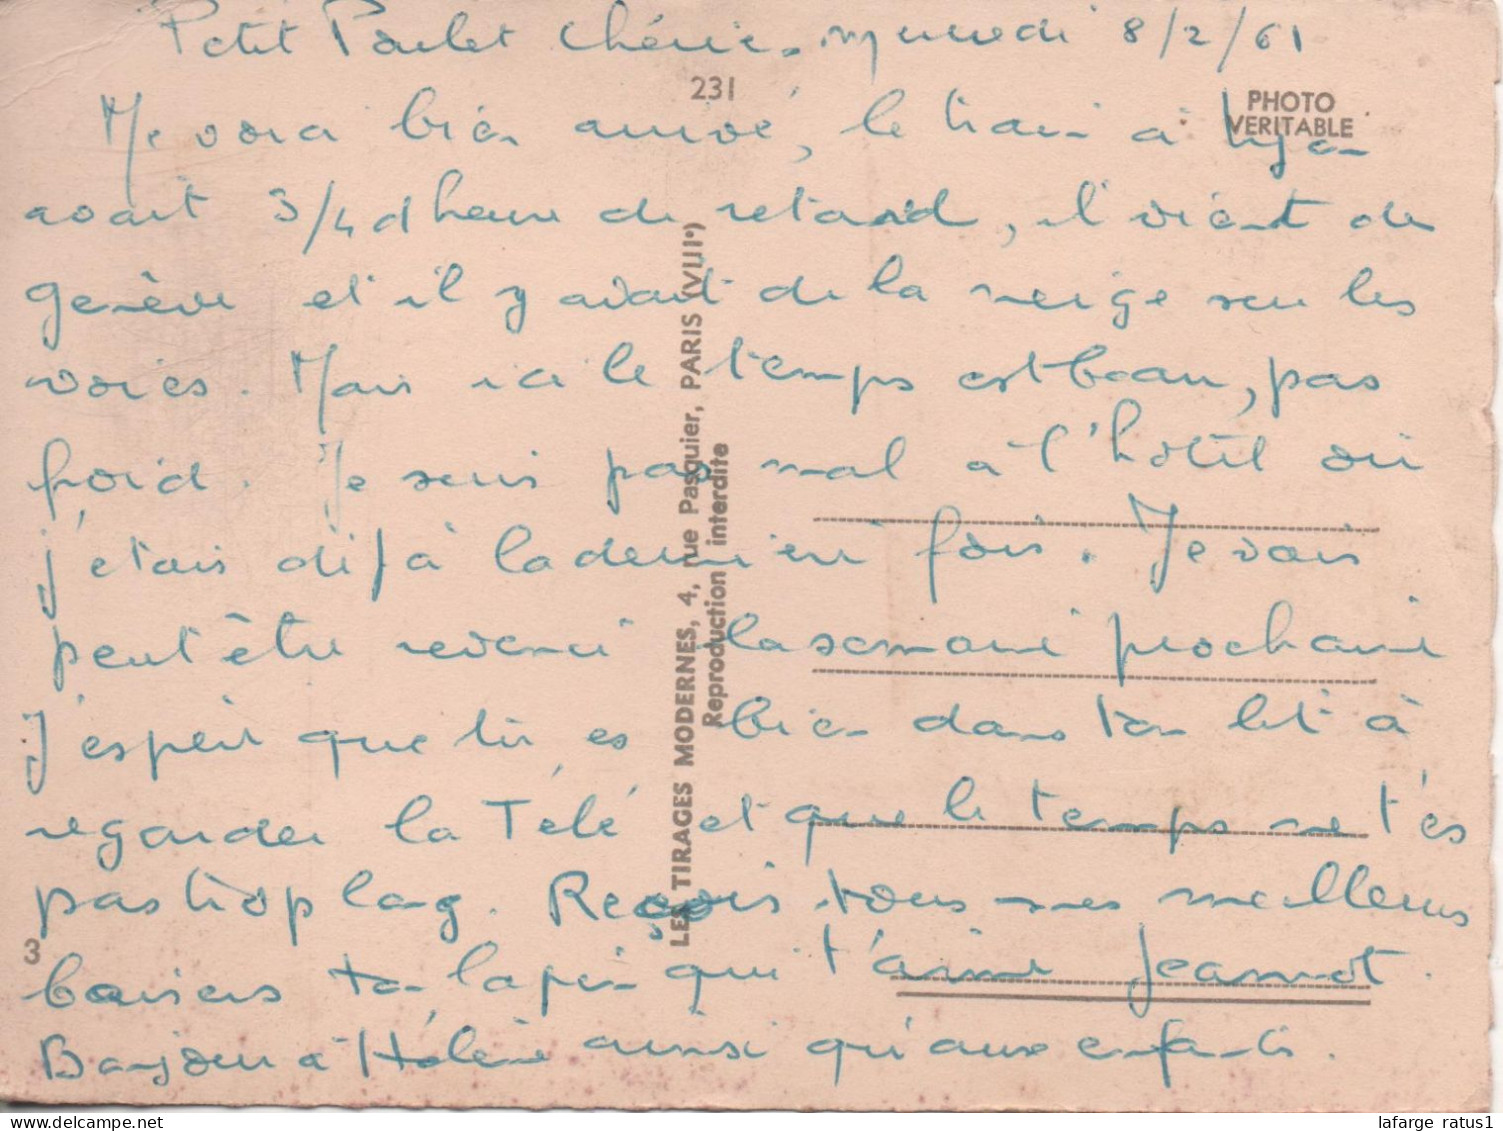 Petit Poulet chérie. mercredi 8/2/61
231
PHOTO
VERITABLE
Me voici bien arrivé, le train à Lyon
avait 3/4 d heure de retard, il vient de
Genève et il y avait de la neige sur les
voies. Mais ici le temps est beau, pas
froid. Je suis pas mal à l'hotel où
j'étais déjà la derniere fois. Je vais
peut être revenir la semaine prochaine
J'espère que tu es bien dans ton lit à
regarder la Télé et que le temps ne t'es
pas trop long. Reçois tous mes meilleurs
baisers ton lapin qui t'aime Jeannot.
Bonjour à Hélène ainsi qu'aux enfants.
3
LES TIRAGES MODERNES, 4, rue Pasquier, PARIS (VIIIe)
Reproduction interdite
lafarge ratus1